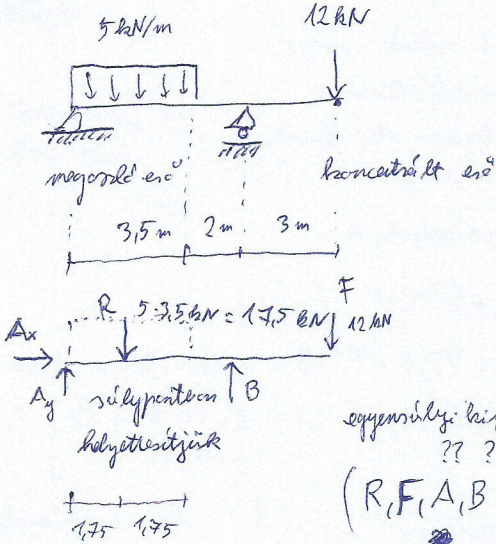 5 kN/m
12 kN
megoszló erő
koncentrált erő
3,5 m
2 m
3 m
R
5·3,5 kN = 17,5 kN
F
12 kN
Ax
Ay
súlypontban
helyettesítjük
B
egyensúlyi
?? ?
(R, F, A, B
1,75
1,75